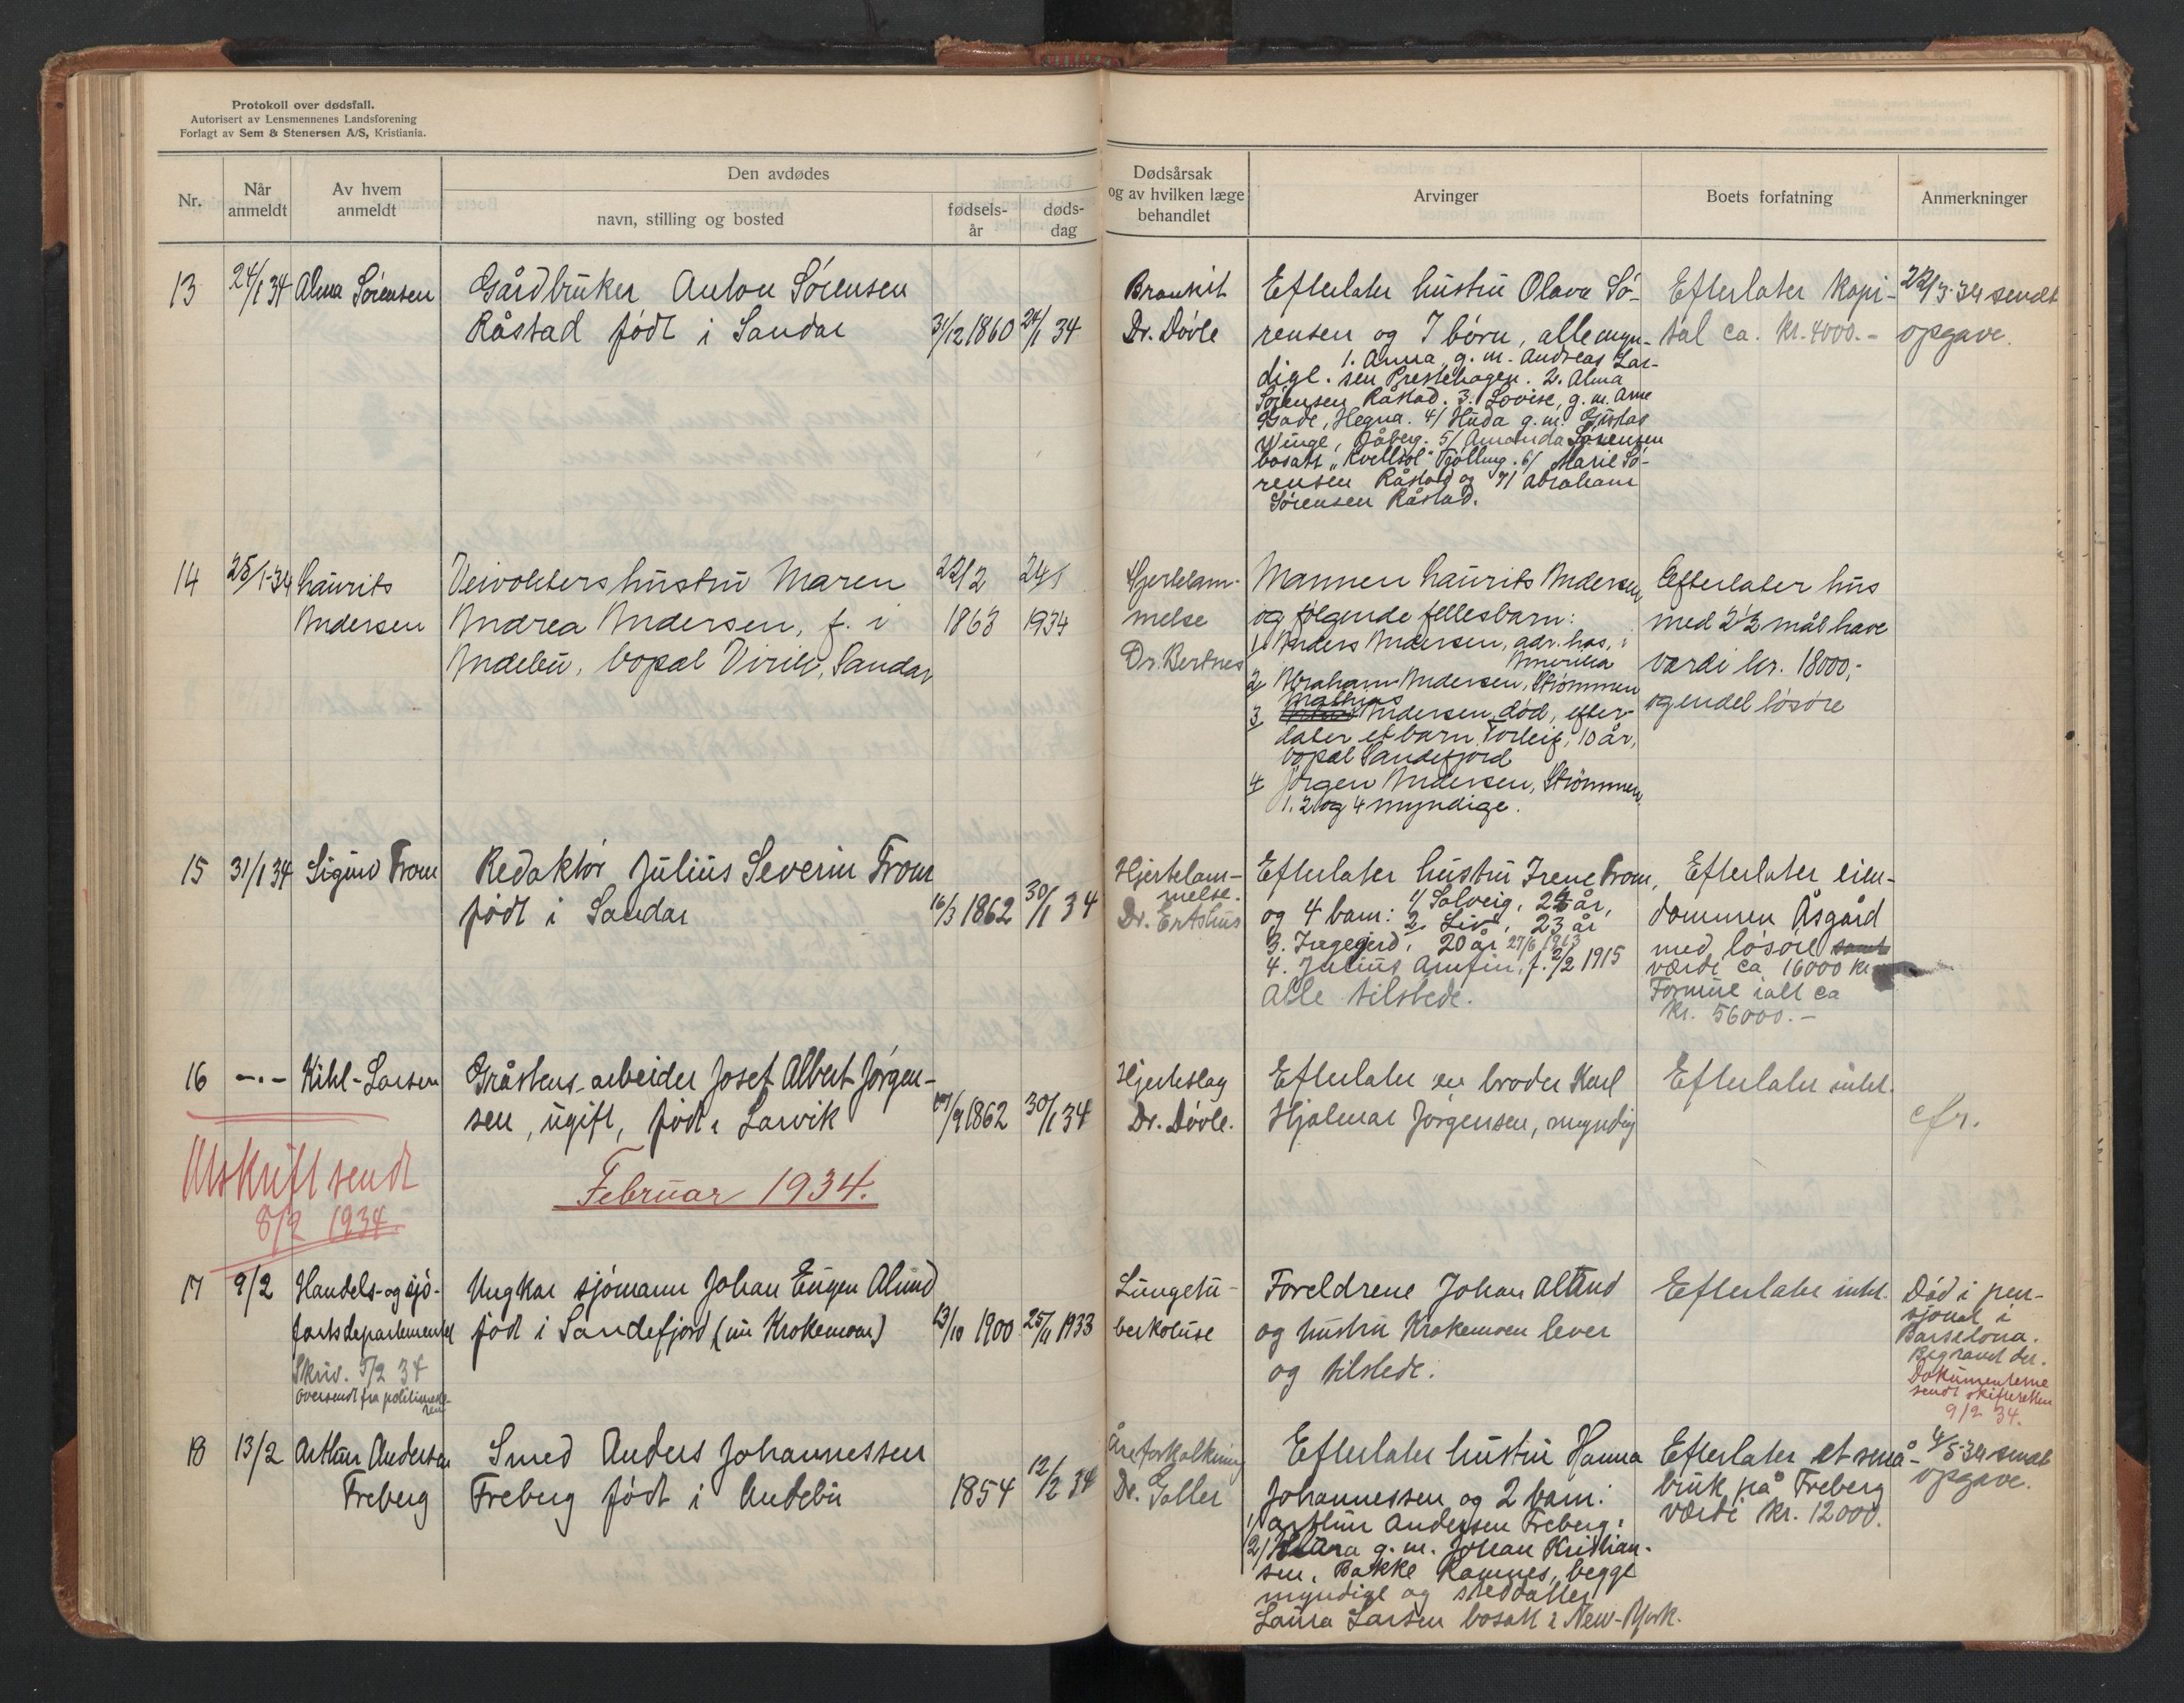 Protokoll over dødsfall.
Autorisert av Lensmennenes Landsforening
Forlagt av Sem & Stenersen A/S, Kristiania.
Nr.
Når
anmeldt
Av hvem
anmeldt
Den avdødes
navn, stilling og bosted
fødsels-
år
døds-
dag
Dødsårsak
og av hvilken læge
behandlet
Arvinger
Boets forfatning
Anmerkninger
13
24/1 34
Alma Sørensen
Gårdbruker Anton Sørensen
Råstad født i Sandar
31/12 1860
24/1 34
Bronkit
Dr. Døvle
Efterlater hustru Olava Sø-
rensen og 7 børn, alle myn-
1. Anna, g. m. Andreas Lar-
digl. sen Prestehagen. 2. Alma
Sørensen Råstad. 3. Lovise, g. m. Arne
Gade, Hegna. 4/ Huda g. m. Gustav
Winge, Jåberg. 5/ Amanda Sørensen
bosatt "Kveldsol" Tjølling. 6/ Marie Sø-
rensen Råstad og 7/ Abraham
Sørensen Råstad.
Efterlater kapi-
tal ca. kr. 4000.-
22/3-34 sendt
opgave.
14
25/1-34
Laurits
Andersen
Veivokters hustru Maren
Andrea Andersen, f. i
Andebu, bopæl Virik, Sandar
22/2
1863
24/1
1934
Hjertelam-
melse
Dr. Bertnes
Mannen Laurits Andersen
og følgende fellesbarn:
1. Anders Andersen, adr. has, i
Amerika
2. Abraham Andersen, Strømmen
Mathias
3. Andersen, død, efter-
later et barn Torleif, 10 år,
bopæl Sandefjord
4. Jørgen Andersen, Strømmen
1. 2. og 4 myndige.
Efterlater hus
med 2 1/2 mål have
værdi kr. 18000,-
og endel løsøre
15
31/1 34
Sigurd From
Redaktør Julius Severin From
født i Sandar
16/3 1862
30/1 34
Hjertelam-
melse.
Dr. Erstius
Efterlater hustru Irene From,
og 4 barn: 1/ Solveig, 24 år,
2. Liv, 23 år
3. Ingegjerd, 20 år 27/6 1913
4. Julius Arnfin, f. 2/2 1915
Alle tilstede.
Efterlater eien-
dommen Åsgård
med løsøre samt
værdi ca 16000 kr
Formue ialt ca
kr. 56000.-
16
-.-
Kihl-Larsen
Gråstens-arbeider Josef Albert Jørgen-
sen, ugift, født i Larvik
/9 1862
30/1 34
Hjerteslag
Dr. Døvle.
Efterlater en broder Karl
Hjalmar Jørgensen, myndig
Efterlater intet.
cfr.
Utskrift sendt
8/2 1934.
Februar 1934.
17
9/2
Handels- og sjø-
fartsdepartementet
Skriv. 5/2 34
Oversendt fra politimeste-
ren
Ungkar sjømann Johan Eugen Alund
født i Sandefjord (nu Krokemoen)
13/10 1900
25/11 1933
Lungetu-
berkuluse
Foreldrene Johan Alund
og hustru Krokemoen lever
og tilstede.
Efterlater intet.
Død i pen-
sjonat i
Barselona.
Begravet der.
Dokumenterne
sendt skifteretten
9/2 34.
18
13/2
Arthur Andersen
Freberg
Smed Anders Johannessen
Freberg født i Andebu
1854
12/2 34
Åreforkalkning
Dr. Galler
Efterlater hustru Hanna
Johannessen og 2 barn:
1/ Arthur Andersen Freberg:
2/ Klara g. m. Johan Kristian-
sen, Bakke Ramnes, begge
myndige og steddatter
Laura Larsen bosatt i New-York.
Efterlater et små-
bruk på Freberg
værdi kr. 12000.
4/5-34 sendt
opgave.